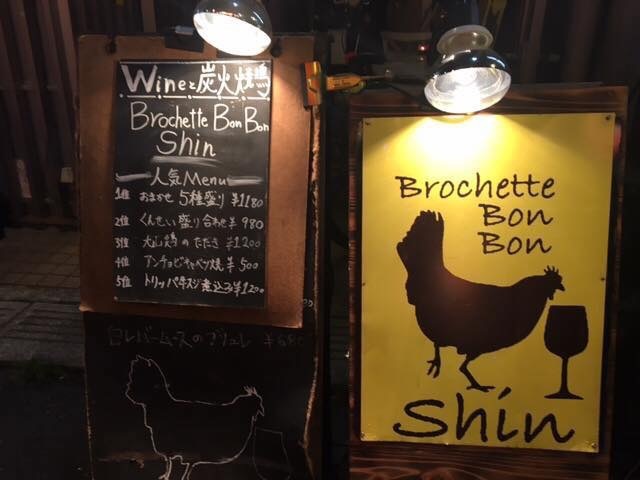 Wineと炭火焼鶏
Brochette Bon Bon
Shin
人気Menu
1位 おまかせ 5種盛り ¥1180
2位 くんせい盛り合わせ ¥980
3位 大山鶏のたたき ¥1200
4位 アンチョビキャベツ焼 ¥500
5位 トリッパ牛スジ煮込み ¥1200
白レバームースのブリュレ ¥680
Brochette
Bon
Bon
Shin